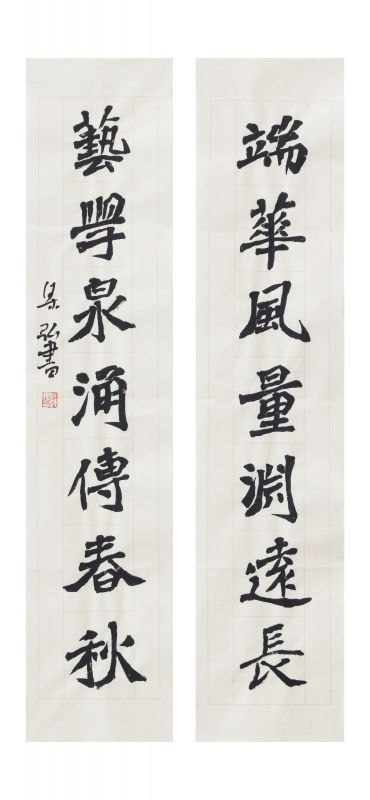 端華風量淵遠長
藝學泉涌傳春秋
弘書